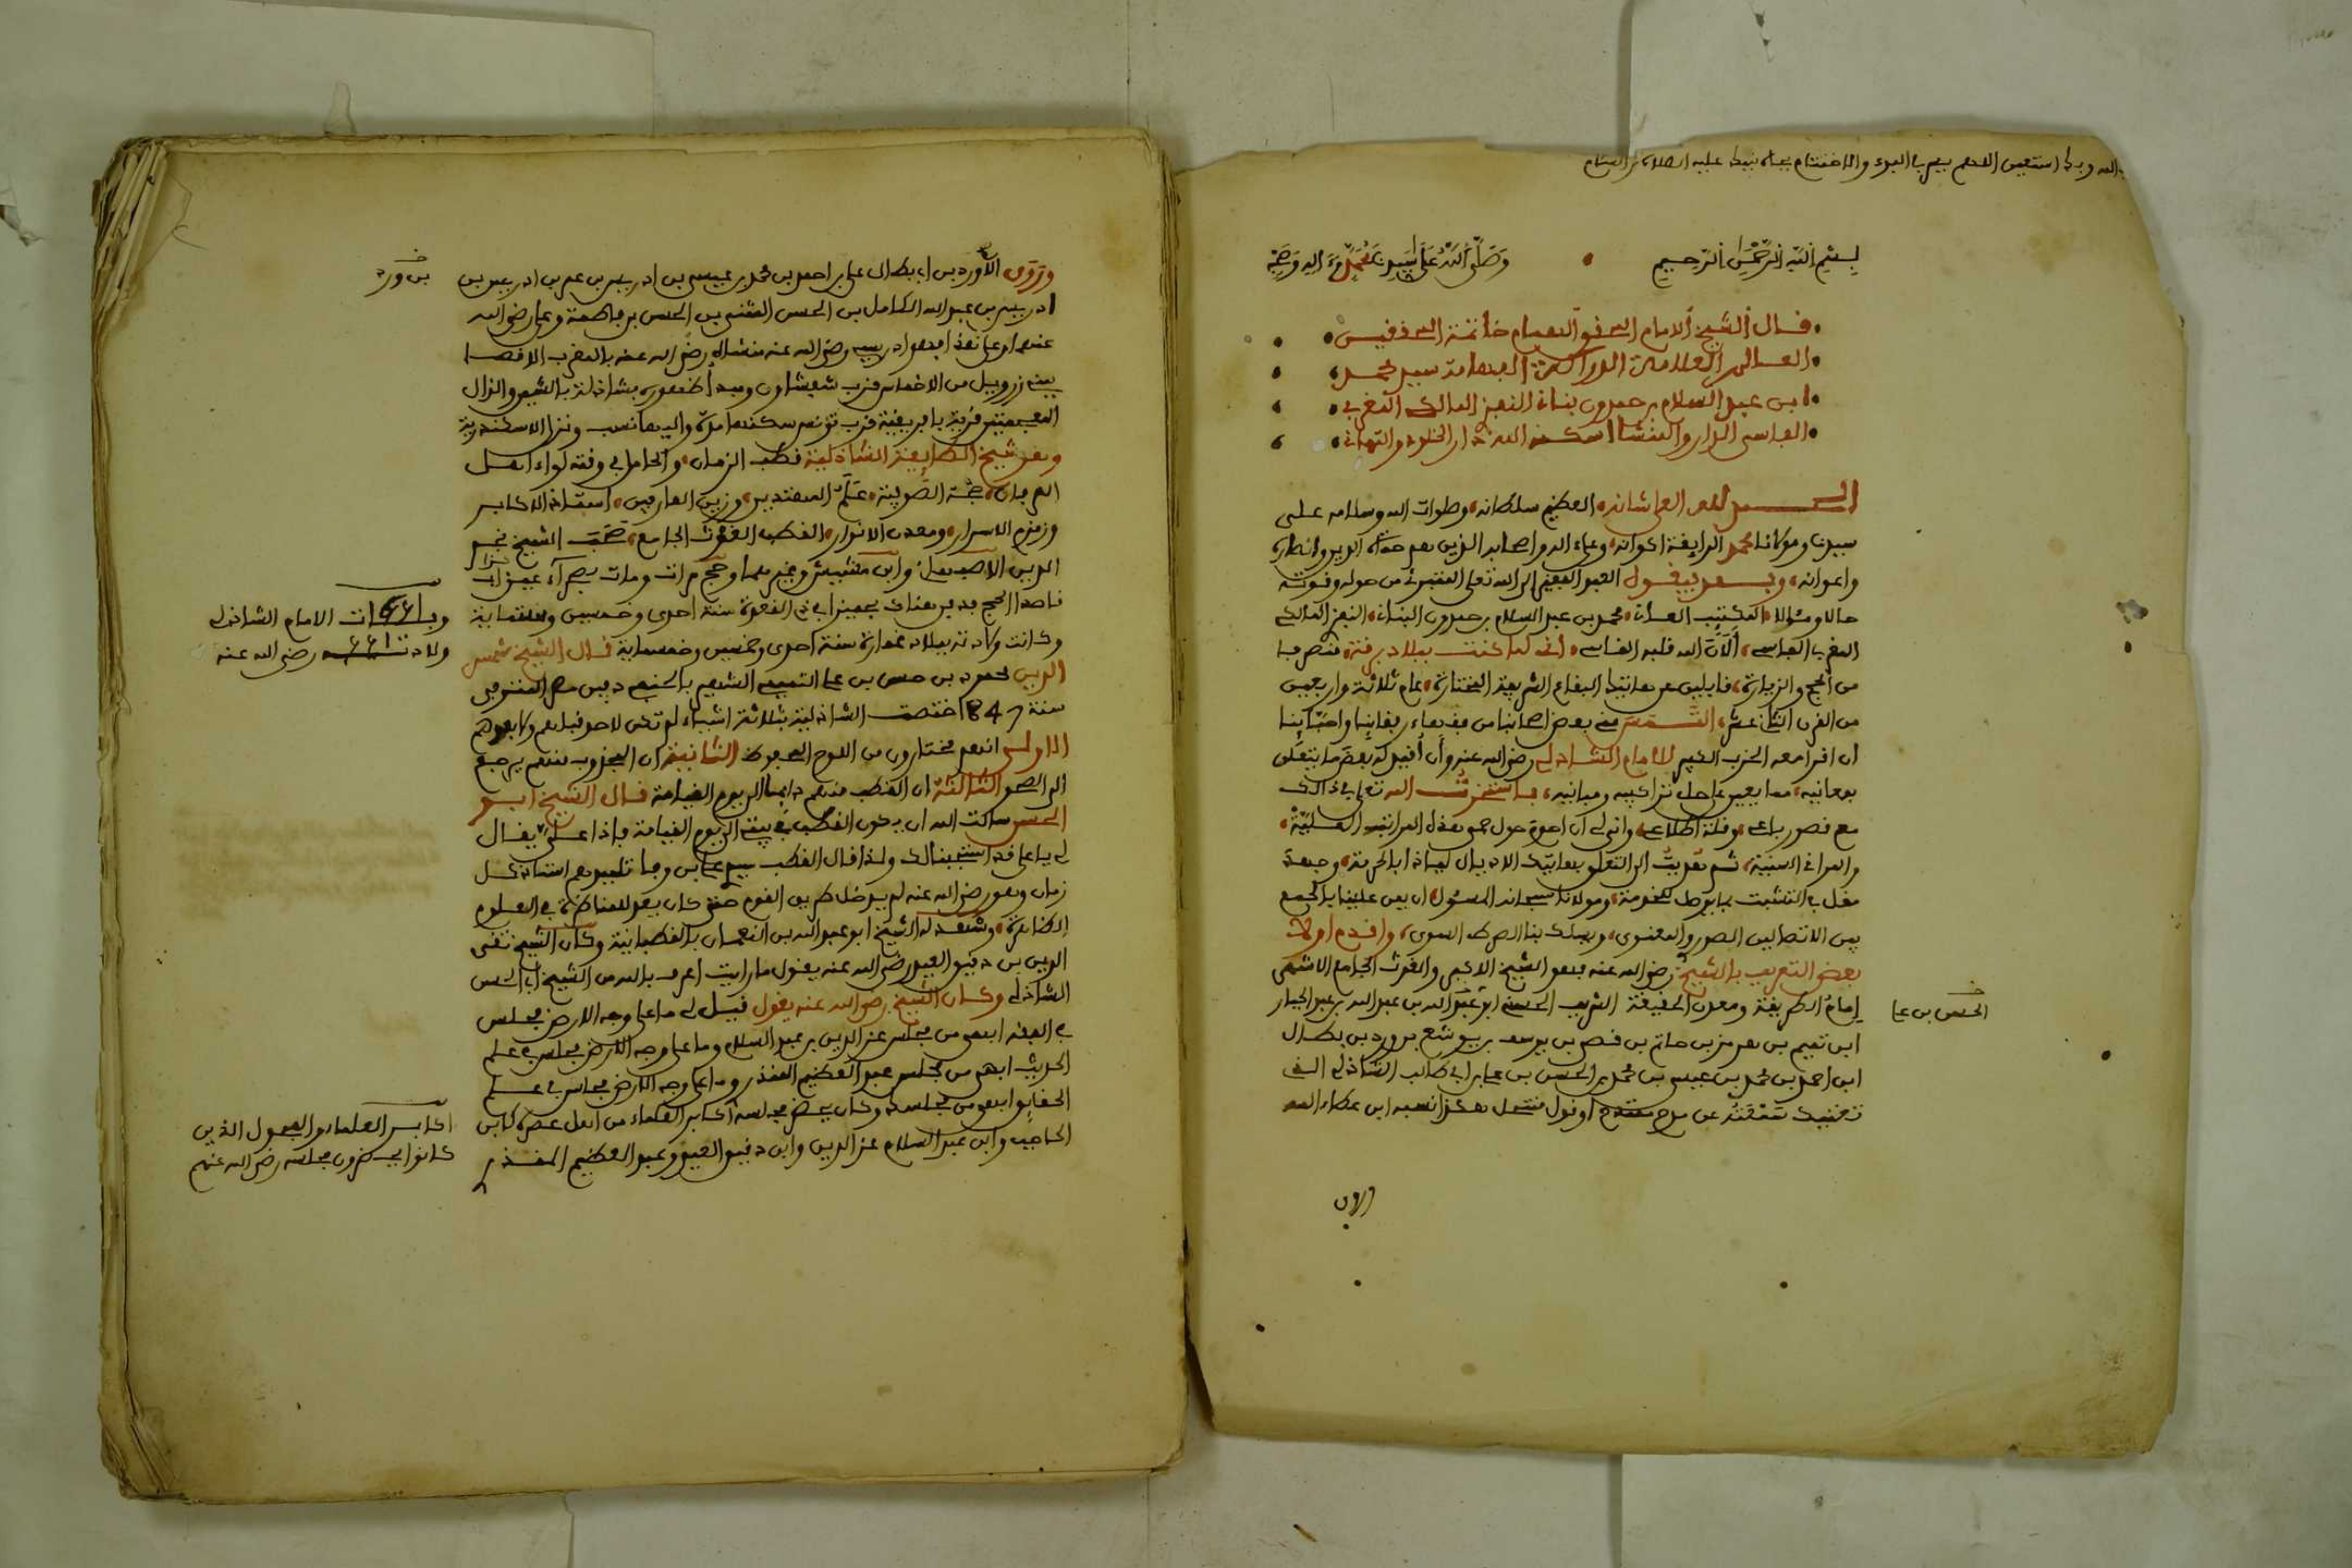 بالله وبك استعين اللهم يسر في البدء والاختتام بجاه نبيك عليه الصلاة والسلام
بسم الله الرحمن الرحيم وصلى الله على سيدنا محمد وءاله وصحبه
قال الشيخ الامام المحقق الهمام خاتمة المحققين
العالم العلامة الدراكة الفهامة سيدي محمد
ابن عبد السلام بن حمدون بناني النفزي المالكي المغربي
الفاسي الدار والمنشا اسكنه الله دار الخلود والتهاني
الحمد لله العلي شانه العظيم سلطانه وصلوات الله وسلامه على
سيدنا ومولانا محمد الرايقة اكوانه وعلى اله واصحابه الذين هم حماة الدين وانصاره
واعوانه وبعد فيقول العبد الفقير الى الله تعلى المتبرئ من حوله وقوته
حالا ومئالا المكتئب العاني محمد بن عبد السلام بن حمدون البناني النفزي المالكي
المغربي الفاسي ألان الله قلبه القاسي اني لما كنت ببلاد برقة منصرفا
من الحج والزيارة قافلين عن هاتيك البقاع الشريفة المختارة عام ثلاثة واربعين
من القرن الثاني عشر التمس مني بعض اصحابنا من فقهاء رفقائنا واحبائنا
ان اقرا معه الحزب الكبير للامام الشاذلي رضي الله عنه وأن أقيد له بعض ما يتعلق
بمعانيه مما يعين على حل تراكيبه ومبانيه فاستخرت الله تعلى في ذالك
مع قصور باعي وقلة اطلاعي وانى لي ان احوم حول حمى هذه المراتب العلية
والمراقي السنية ثم تعديت الى التعلق بهاتيك الاذيال لياذا بالحرمة وجهد
مقل في التشبث بما يوصل للخدمة ومولانا سبحانه المسئول ان يمن علينا بالجمع
بين الاتصالين الصوري والمعنوي ويسلك بنا الصراط السوي واقدم اولا
بعض التعريف بالشيخ رضي الله عنه فهو الشيخ الاكبر والغوث الجامع الاشهر
إمام الطريقة ومعدن الحقيقة الشريف الحسني ابو علي عبد الله بن عبد الجبار
الحسن بن علي
ابن تميم بن هرمز بن حاتم بن قصي بن يوسف بن يوشع بن ورد بن بطال
ابن احمد بن محمد بن عيسى بن محمد بن الحسن بن علي بن ابي طالب الشاذلي الذي
تغنيك عن مدح اوقول هكذا نسبه ابن عطاء الله
ورد بن ابي بطال علي بن احمد بن محمد بن عيسى بن ادريس بن عمر بن ادريس بن
بن ورد
ادريس بن عبد الله الكامل بن الحسن المثنى بن الحسن بن فاطمة وعلي رضي الله
عنهم وعلى هذا فهو ادريسي رضي الله عنه منشاه رضي الله عنه بالمغرب الاقصا
ببني زرويل من الاخماس قرب شفشاون ومبدأ ظهوره بشاذلة بالشين والذال
المعجمتين قرية بافريقية قرب تونس سكنها مدة واليها نسب ونزل الاسكندرية
وهو شيخ الطايفة الشاذلية قطب الزمان والحامل في وقته لواء اهل
العرفان حجة الصوفية علم المهتدين وزين العارفين استاذ الاكابر
وزمزم الاسرار ومعدن الانوار القطب الغوث الجامع صحب الشيخ نجم
الدين الاصبهاني وابن مشيش وغيرهما وحج مرات ومات بصحراء عيذاب
قاصدا الحج فدفن هناك بحميثرا في ذي القعدة سنة احدى وخمسين وستمائة
وفات الامام الشاذلي
وكانت ولادته ببلاد غمارة سنة احدى وخمسين وخمسماية قال الشيخ شمس
رضي الله عنه
الدين محمد بن حسن بن علي التميمي الشهير بالحنفي دفين مصر المتوفى
سنة 847 اختصت الشاذلية بثلاثة اشياء لم تكن لاحد قبلهم ولا بعدهم
الاولى انهم مختارون من اللوح المحفوظ الثانية ان المجذوب منهم يرجع
الى الصحو الثالثة ان القطب منهم دايما الى يوم القيامة قال الشيخ ابو
الحسن سالت الله ان يكون القطب في بيتي الى يوم القيامة فاذا علي يقال
لي يا علي قد استجبنا لك ولذا قال القطب سيدي علي بن وفا تلميذهم استاذ كل
زمان وهو رضي الله عنه لم يدخل طريق القوم حتى كان يعد للمناظرة في العلوم
الظاهرة وشهد له الشيخ ابو عبد الله بن النعمان بالقطبانية وكان الشيخ تقي
الدين بن دقيق العيد رضي الله عنه يقول ما رايت اعرف بالله من الشيخ ابي الحسن
الشاذلي وكان الشيخ رضي الله عنه يقول قيل لي ما على وجه الارض مجلس
في الفقه ابهى من مجلس عز الدين بن عبد السلام وما على وجه الارض مجلس في علم
الحديث ابهى من مجلس عبد العظيم المنذري وما على وجه الارض مجلس في علم
الحقايق ابهى من مجلسك وكان يحضر مجلسه اكابر العلماء من اهل عصره كابن
اكابر العلماء والفحول الذين
الحاجب وابن عبد السلام عز الدين وابن دقيق العيد وعبد العظيم المنذري
كانوا يحضرون مجلسه رضي الله عنهم